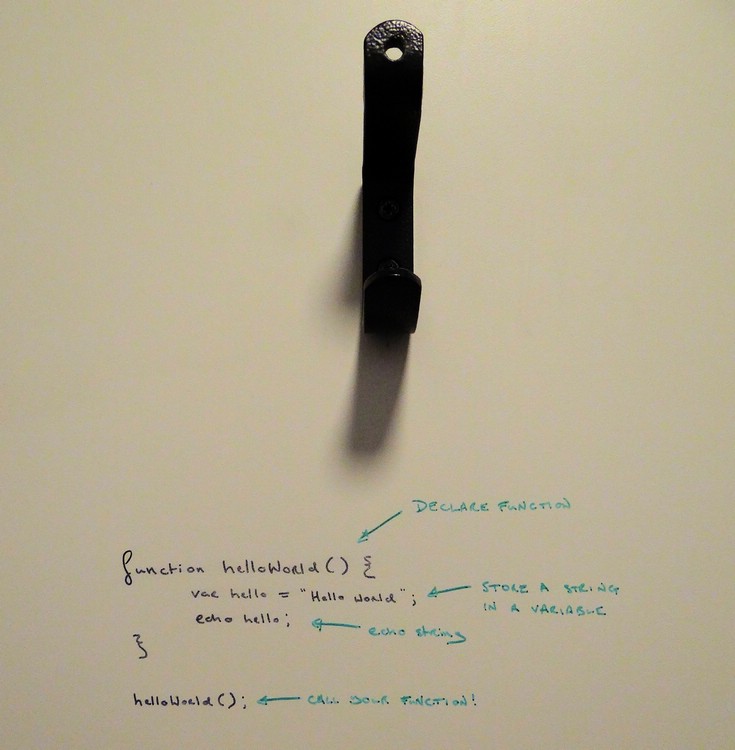 DECLARE FUNCTION
function helloWorld() {
var hello = "Hello World"; STORE A STRING
IN A VARIABLE
echo hello; echo string
}
helloWorld(); CALL YOUR FUNCTION!